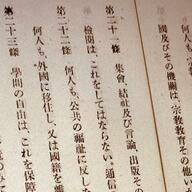 何人も、宗
國及びその機關は、宗教教育その
第二十一條　集會、結社及び言論、出版そ
檢閲は、これをしてはならない。通信
第二十二條　何人も、公共の福祉に反しな
何人も、外國に移住し、又は國籍を離
第二十三條　學問の自由は、これを保障